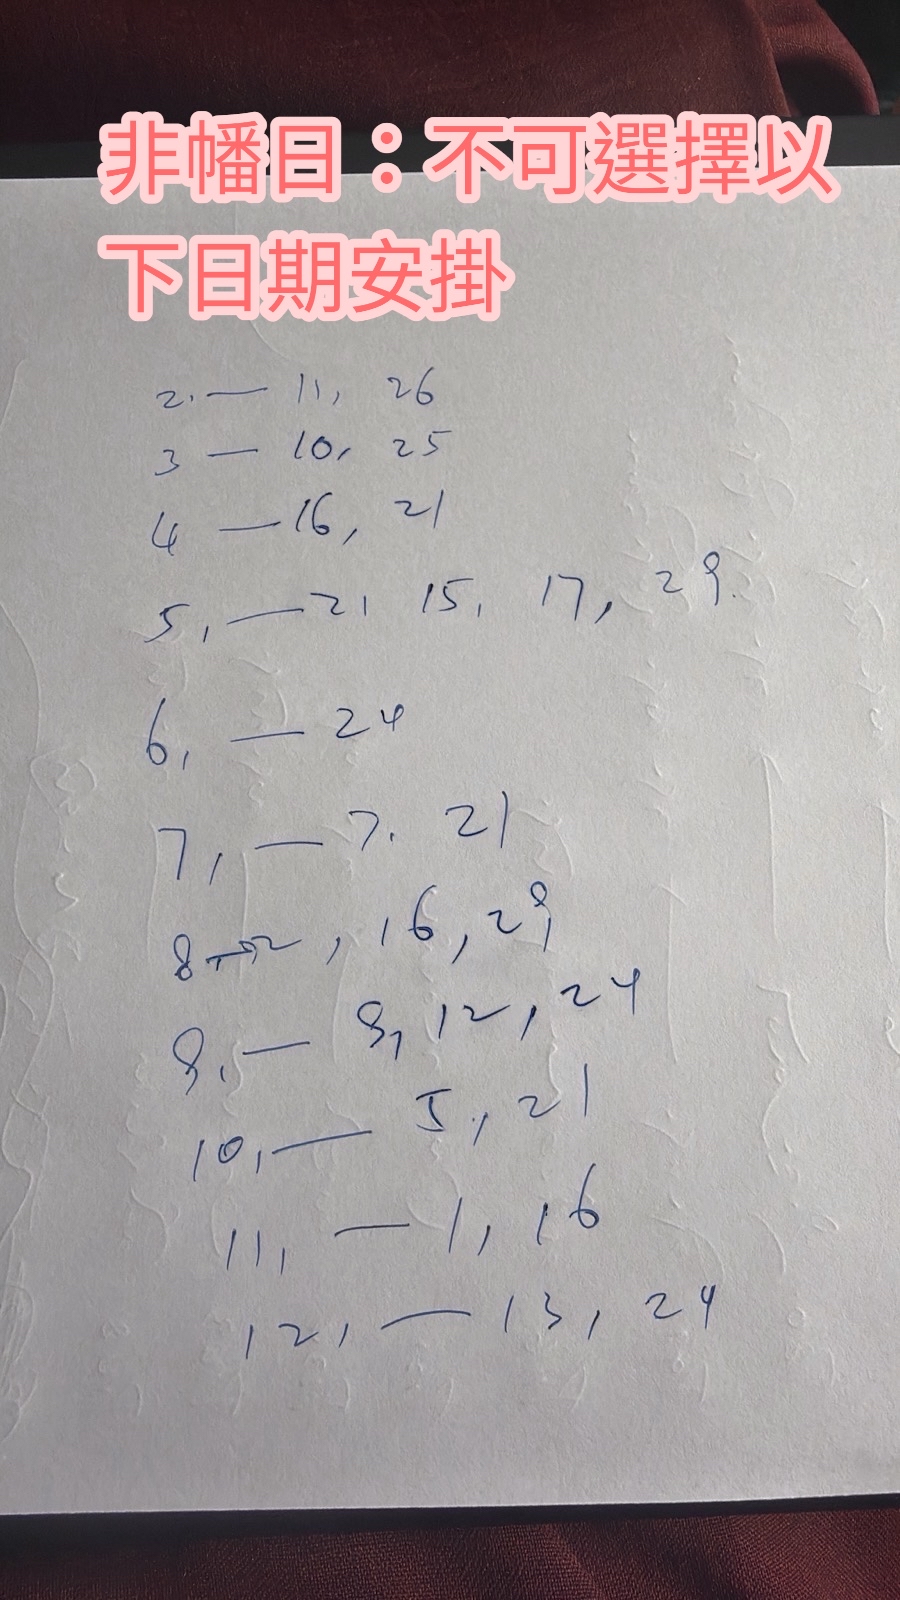 非幡日：不可選擇以
下日期安掛
2. — 11, 26
3 — 10, 25
4 — 16, 21
5, — 2, 15, 17, 29.
6, — 24
7, — 7. 21
8 — 2, 16, 29
9, — 9, 12, 24
10, — 5, 21
11, — 1, 16
12, — 13, 24